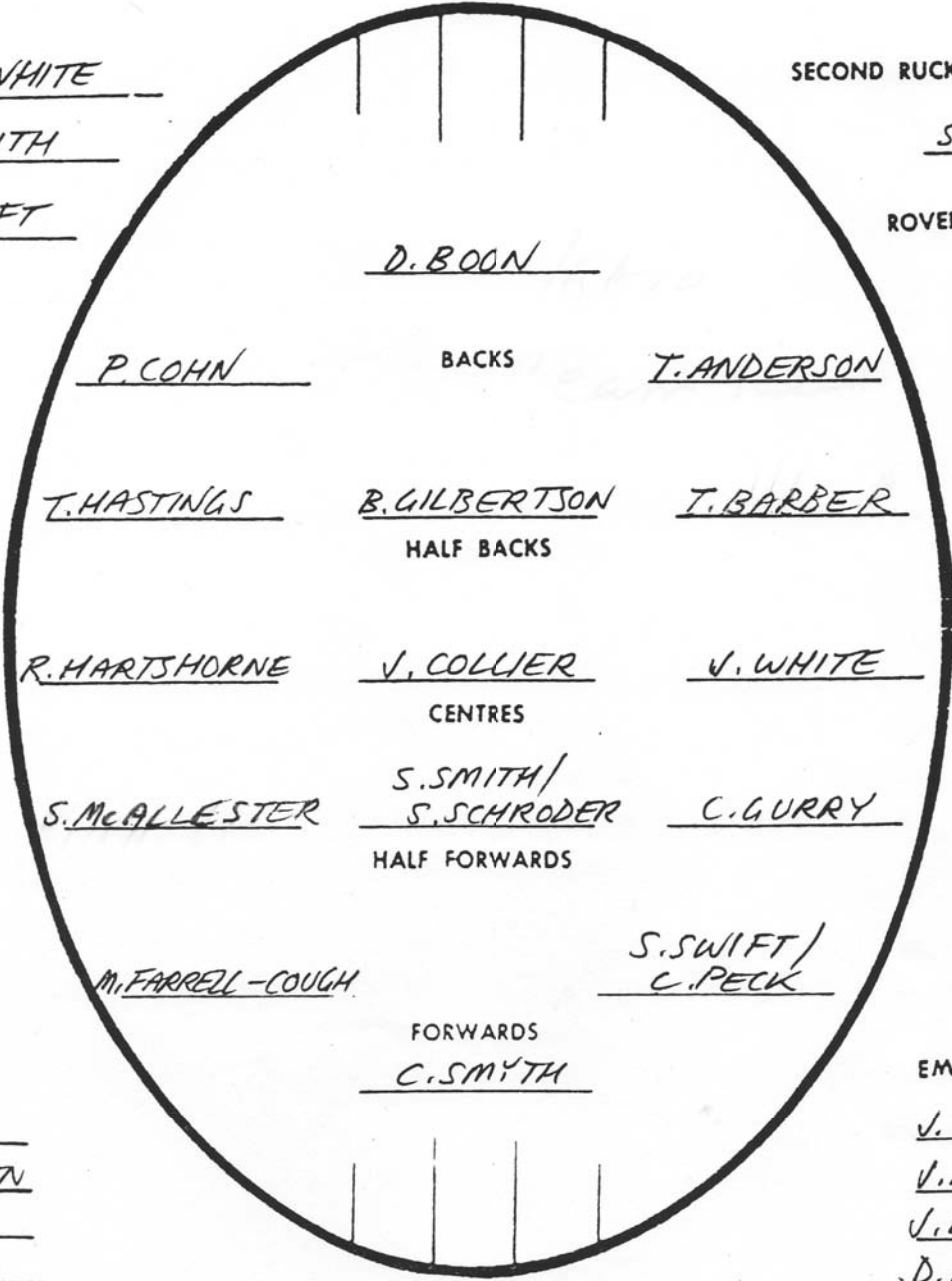 WHITE
SECOND RUCK
ROVE
D. BOON
P. COHN BACKS T. ANDERSON
T. HASTINGS B. GILBERTSON T. BARBER
HALF BACKS
R. HARTSHORNE J. COLLIER J. WHITE
CENTRES
S. SMITH/
S. McALLESTER S. SCHRODER C. GURRY
HALF FORWARDS
S. SWIFT/
M. FARRELL-COUGH C. PECK
FORWARDS
C. SMYTH
EM
J.
J.
D.